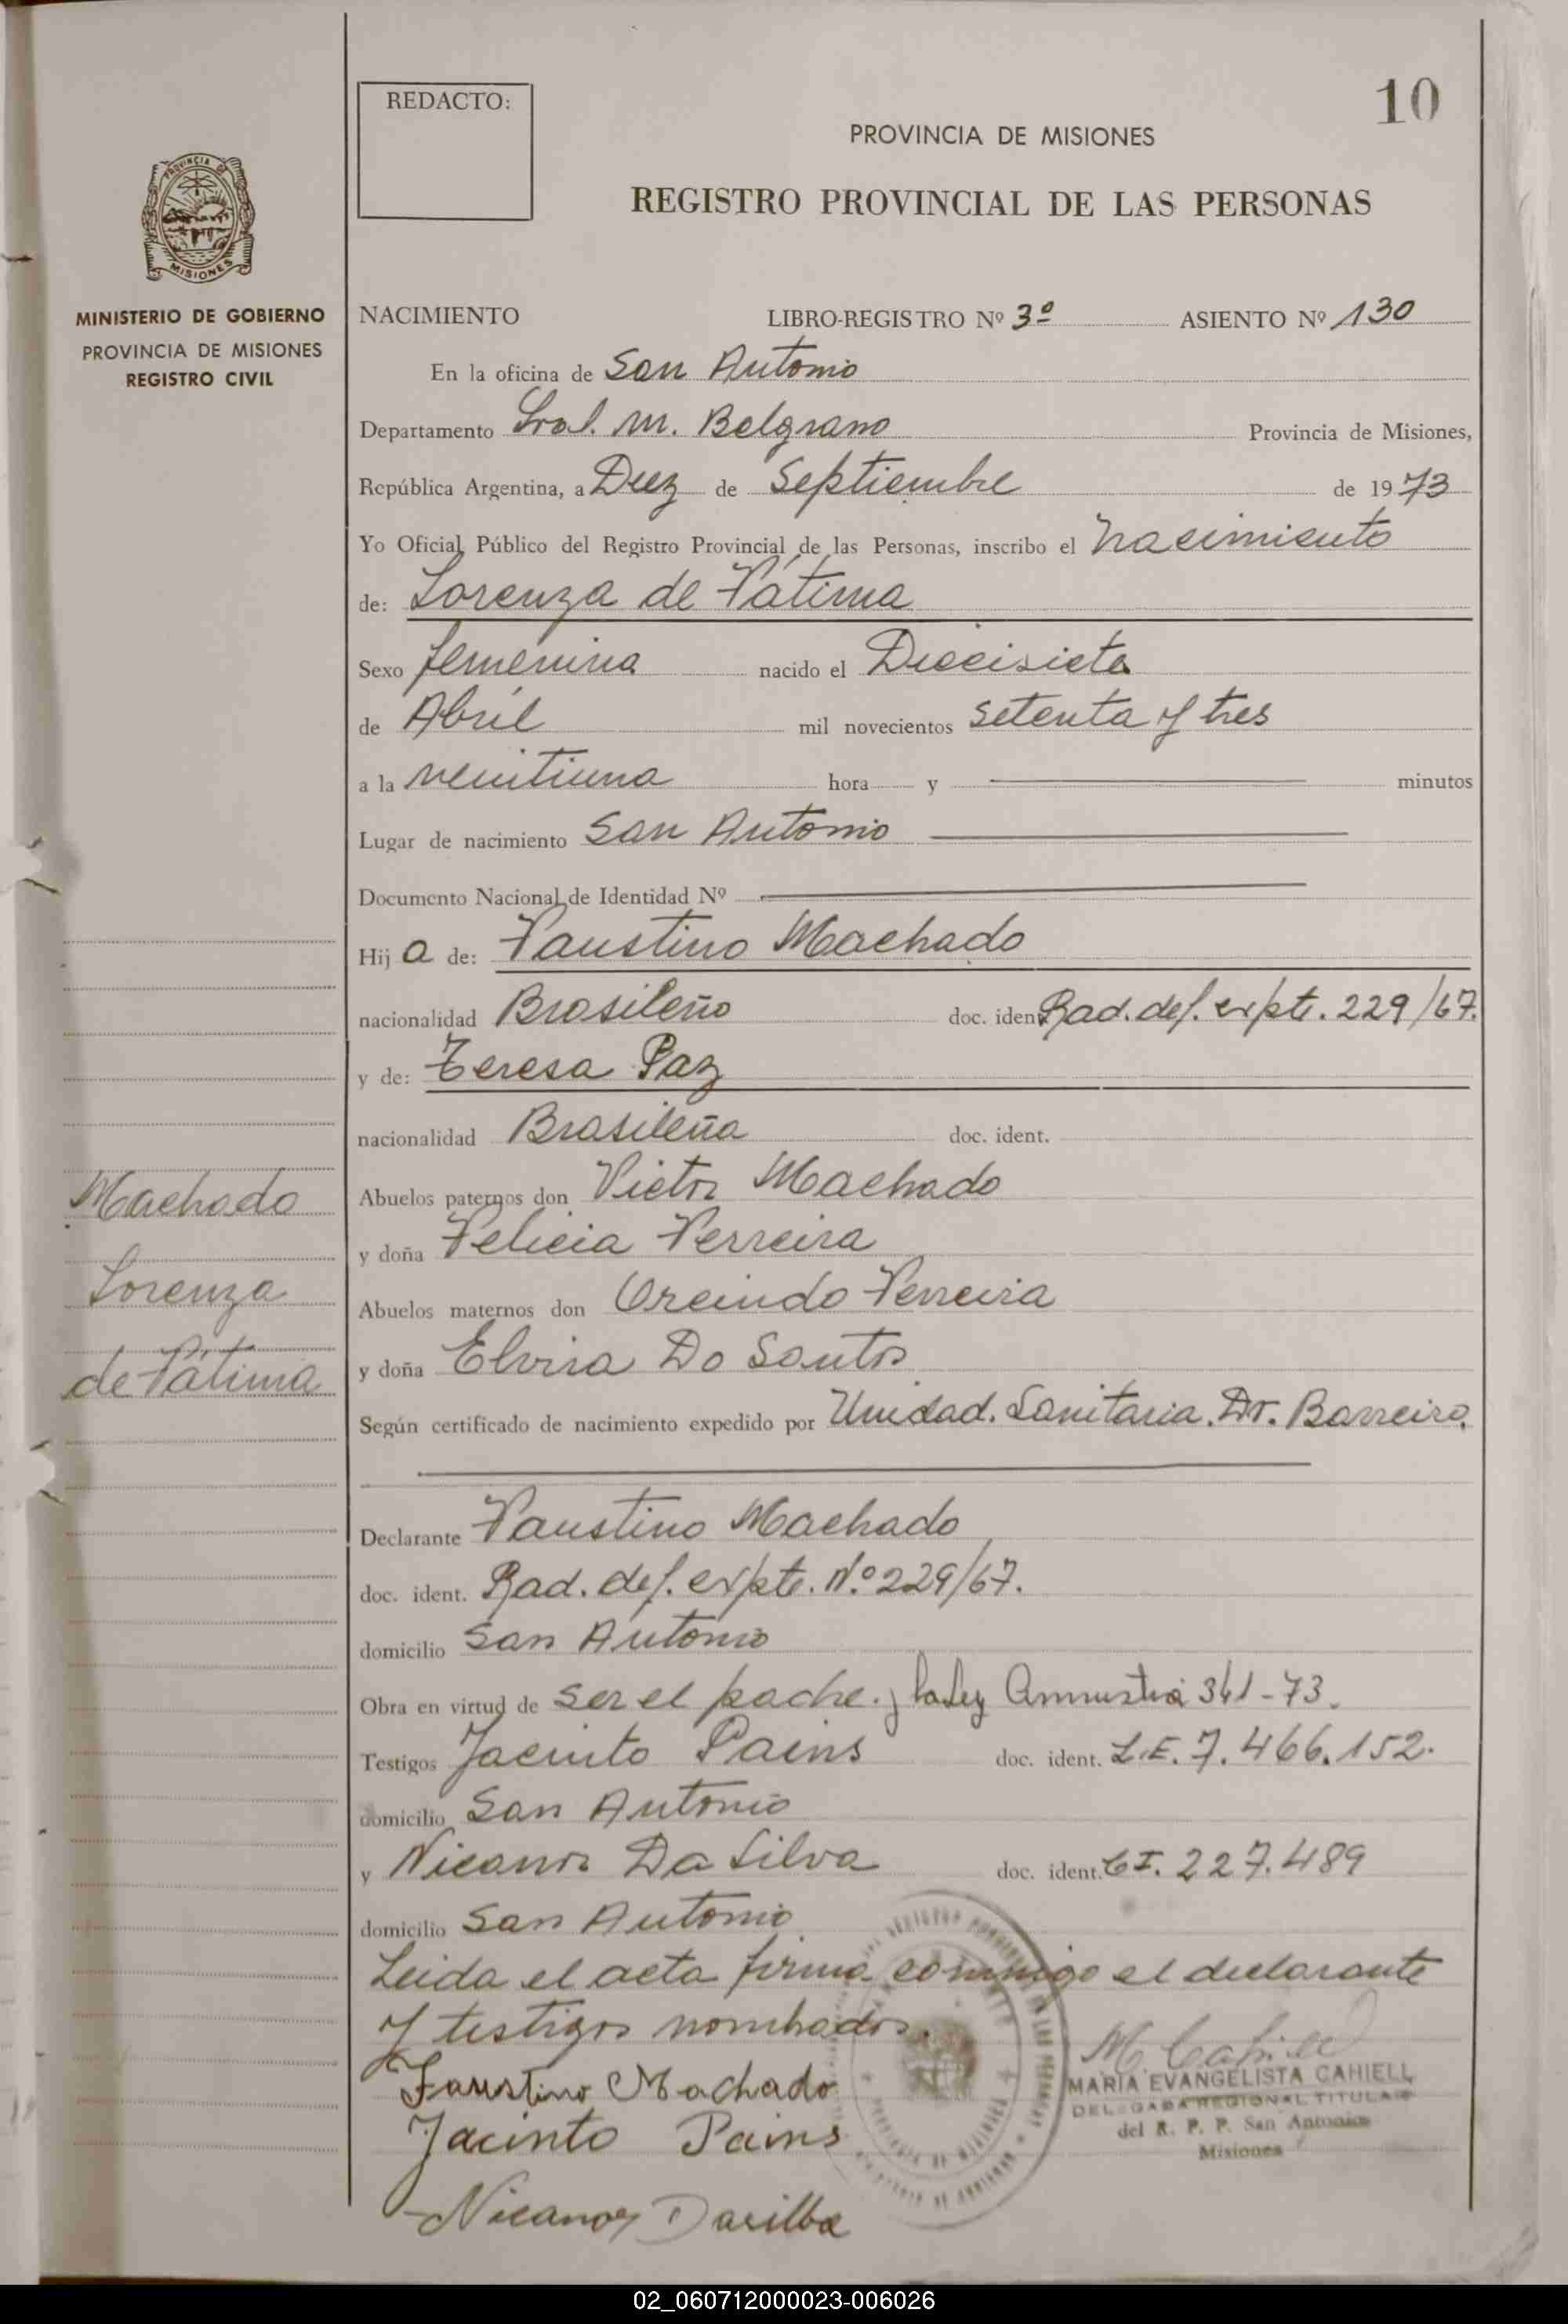 REDACTO:
10
PROVINCIA DE MISIONES
REGISTRO PROVINCIAL DE LAS PERSONAS
PROVINCIA DE
MISIONES
MINISTERIO DE GOBIERNO
PROVINCIA DE MISIONES
REGISTRO CIVIL
NACIMIENTO LIBRO-REGISTRO Nº 3º ASIENTO Nº 130
En la oficina de San Antonio
Departamento Gral. M. Belgrano Provincia de Misiones,
República Argentina, a Diez de Septiembre de 1973
Yo Oficial Público del Registro Provincial de las Personas, inscribo el nacimiento
de: Lorenza de Fátima
Sexo femenina nacido el Diecisiete
de Abril mil novecientos setenta y tres
a la veintiuna hora y minutos
Lugar de nacimiento San Antonio
Documento Nacional de Identidad Nº
Hija de: Faustino Machado
nacionalidad Brasileño doc. ident. Rad. def. expte. 229/67.
y de: Teresa Paz
nacionalidad Brasileña doc. ident.
Abuelos paternos don Victor Machado
y doña Felicia Ferreira
Abuelos maternos don Orcindo Ferreira
y doña Elvira Do Santos
Según certificado de nacimiento expedido por Unidad. Sanitaria. Dr. Barreiro.
Machado
Lorenza
de Fátima
Declarante Faustino Machado
doc. ident. Rad. def. expte. Nº 229/67.
domicilio San Antonio
Obra en virtud de ser el padre. y la Ley Amnistia 341-73.
Testigos Jacinto Pains doc. ident. L.E. 7.466.152.
domicilio San Antonio
y Nicanor Da Silva doc. ident. C.I. 227.489
domicilio San Antonio
Leida el acta firma conmigo el declarante
y testigos nombrados.
Faustino Machado
Jacinto Pains
Nicanor Dasilba
M Cahiell
MARIA EVANGELISTA CAHIELL
DELEGADA REGIONAL TITULAR
del R. P. P. San Antonio
Misiones
02_060712000023-006026